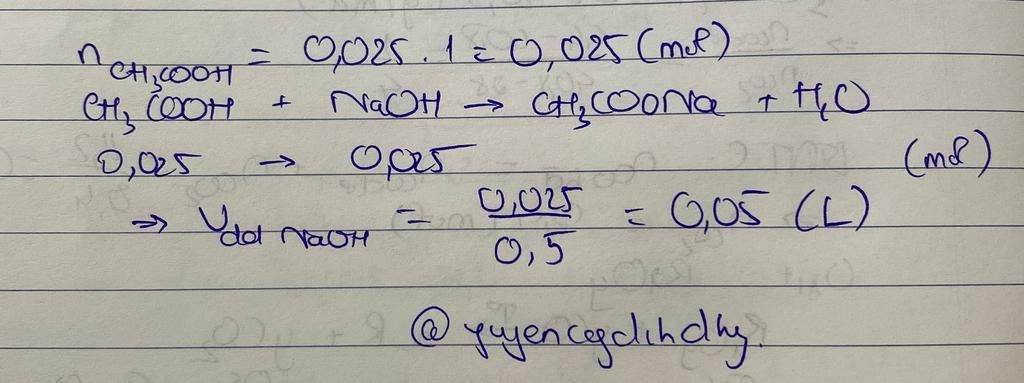 nCH3COOH = 0,025 . 1 = 0,025 (mol)
CH3COOH + NaOH → CH3COONa + H2O
0,025 → 0,025 (mol)
⇒ Vdd NaOH = 0,025 / 0,5 = 0,05 (L)